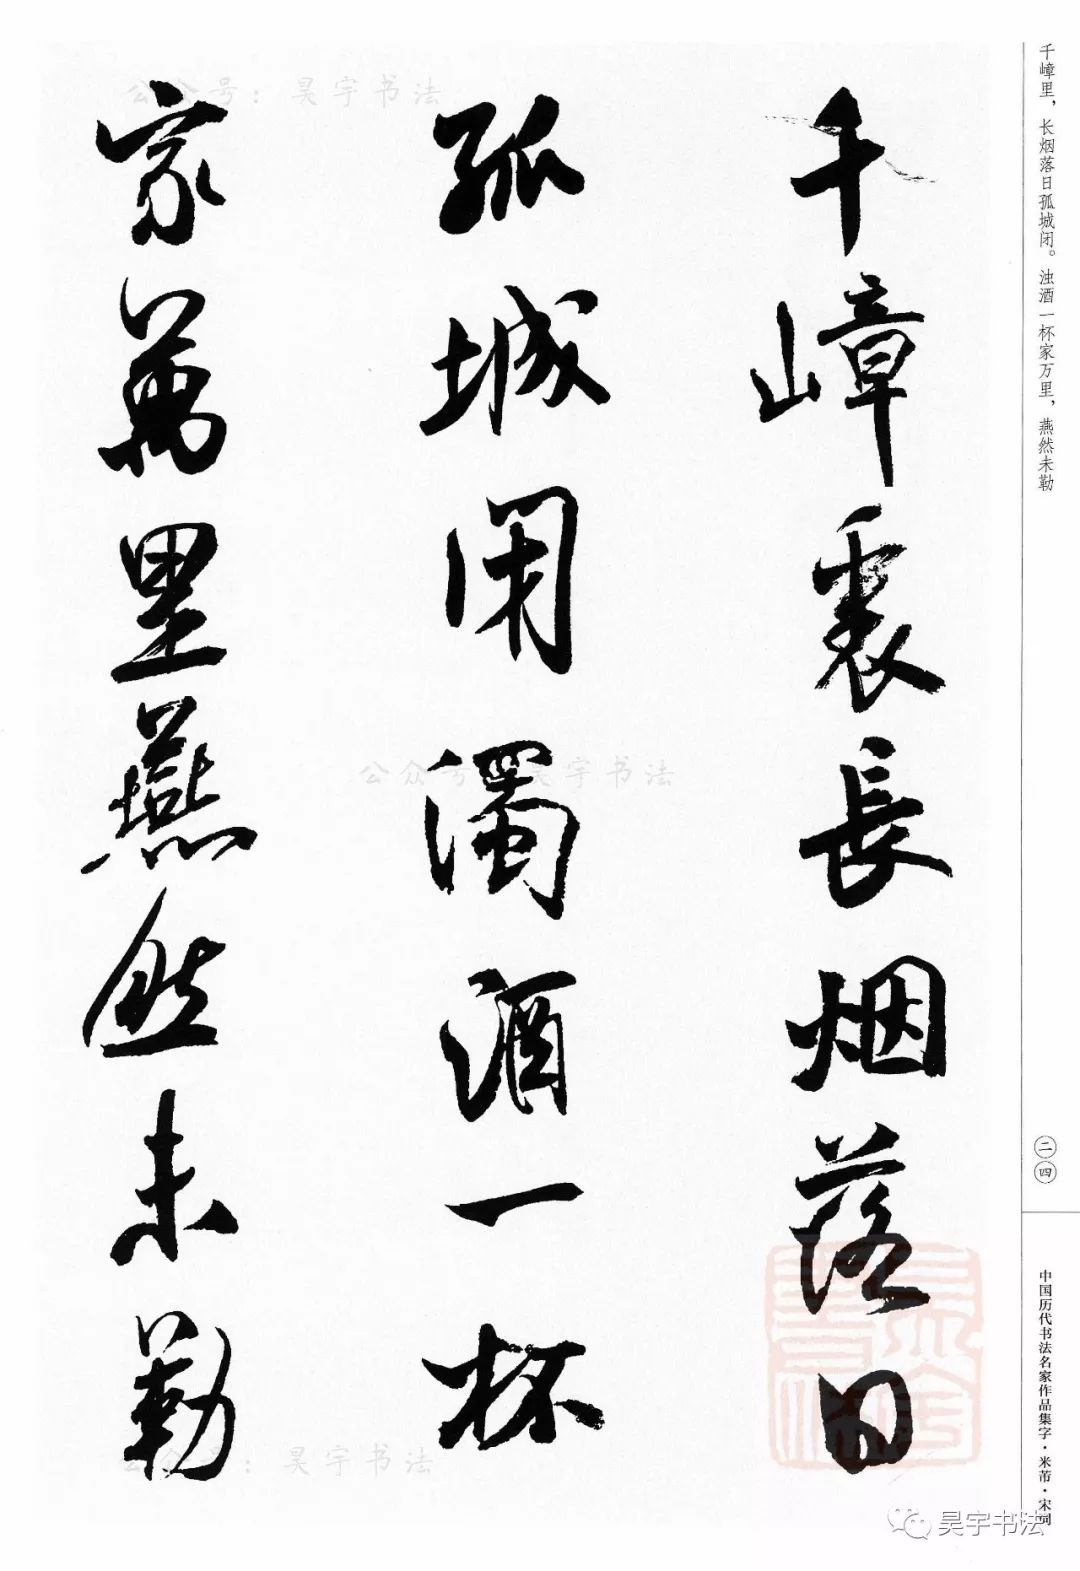 千嶂里，长烟落日孤城闭。浊酒一杯家万里，燕然未勒
千嶂裏長烟落日
孤城闭濁酒一杯
家萬里燕然未勒
二四
中国历代书法名家作品集字·米芾·宋词
公众号：昊宇书法
公众号：昊宇书法
公众号：昊宇书法
昊宇书法